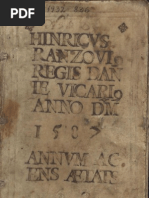 HINRICVS
RANZOVI⁹
REGIS DAN
IE VICARI⁹
ANNO DM
1587
ANNVM AC
ENS ÆTAT